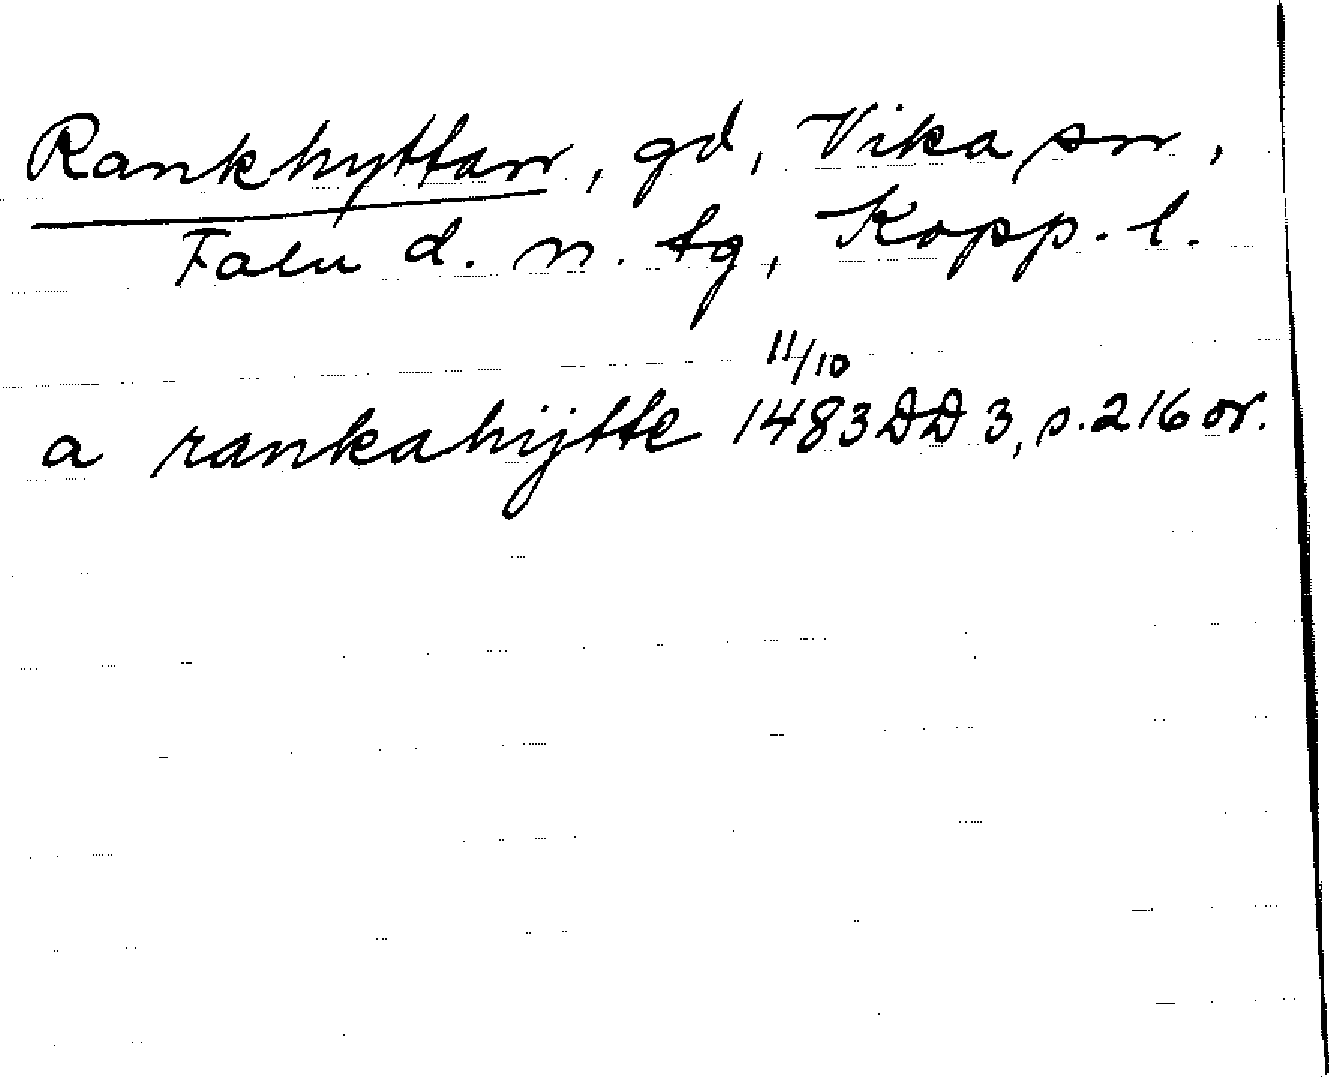 Rankhyttan, gd, Vika sn,
Falu d. n. tg, Kopp. l.
11/10
a rankahÿtte 1483 DD 3, s. 216 or.